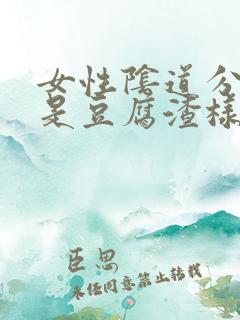 女性陰道分
是豆腐渣樣
臣思
未經同意禁止轉載